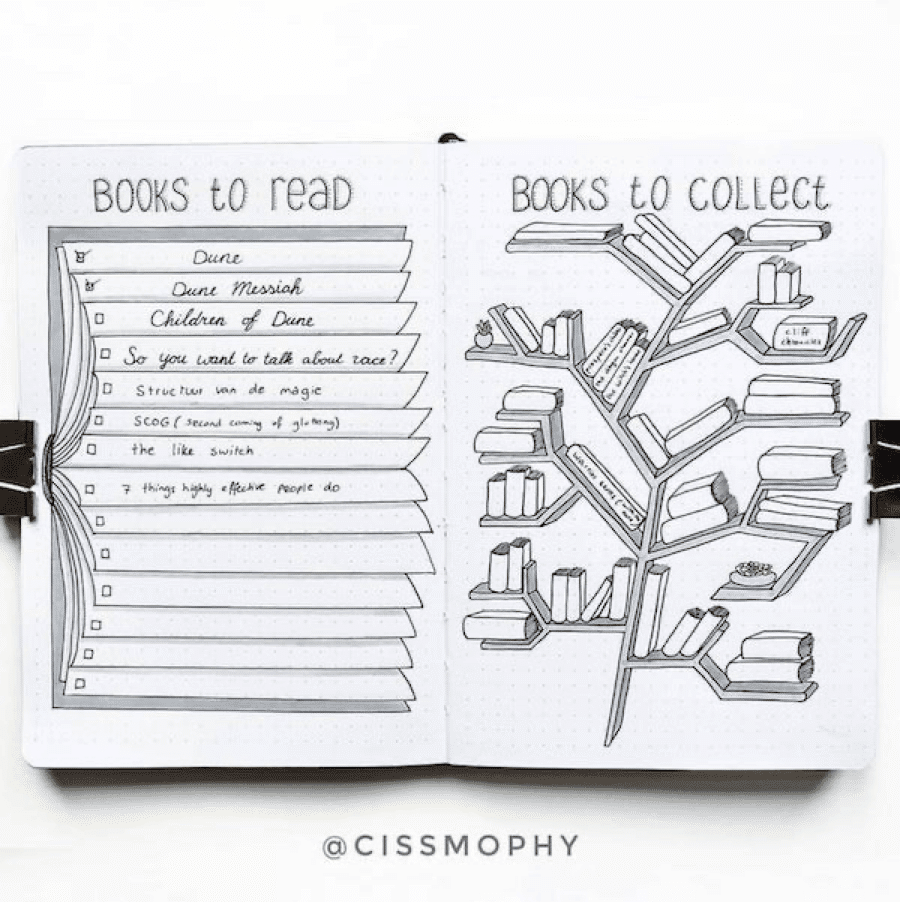 BOOKS to read
Dune
Dune Messiah
Children of Dune
So you want to talk about race?
Structuur van de magie
SCOG (second coming of
the like switch
7 things highly effective people do
BOOKS to collect
cliff
chronicles
@CISSMOPHY